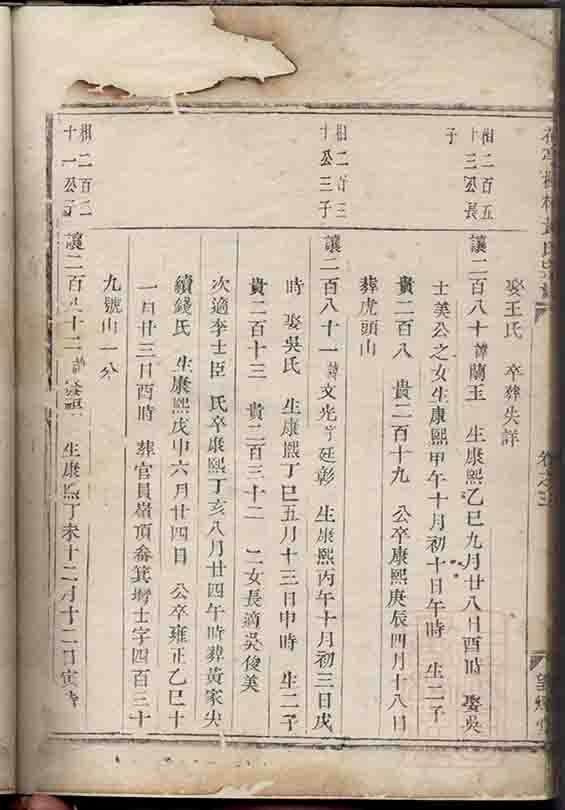 黃氏
卷之三
娶王氏 卒葬失詳
相二百五
十三公長
子
讓二百八十諱蘭玉 生康熙乙巳九月廿八日酉時 娶吳
士美公之女生康熙甲午十月初十日午時 生二子
貴二百八 貴二百十九 公卒康熙庚辰四月十八日
葬虎頭山
相二百三
十公三子
讓二百八十一諱文光字廷彰 生康熙丙午十月初三日戌
時 娶吳氏 生康熙丁巳五月十三日申時 生二子
貴二百十三 貴二百三十二 二女長適吳俊美
次適李士臣 氏卒康熙丁亥八月廿四午時葬黃家尖
續錢氏 生康熙戊申六月廿四日 公卒雍正乙巳十
一月廿三日酉時 葬官員嶺頂畚箕塆士字四百三十
九號山一分
相二百二
十一公子
讓二百八十二 生康熙丁未十二月十二日寅時